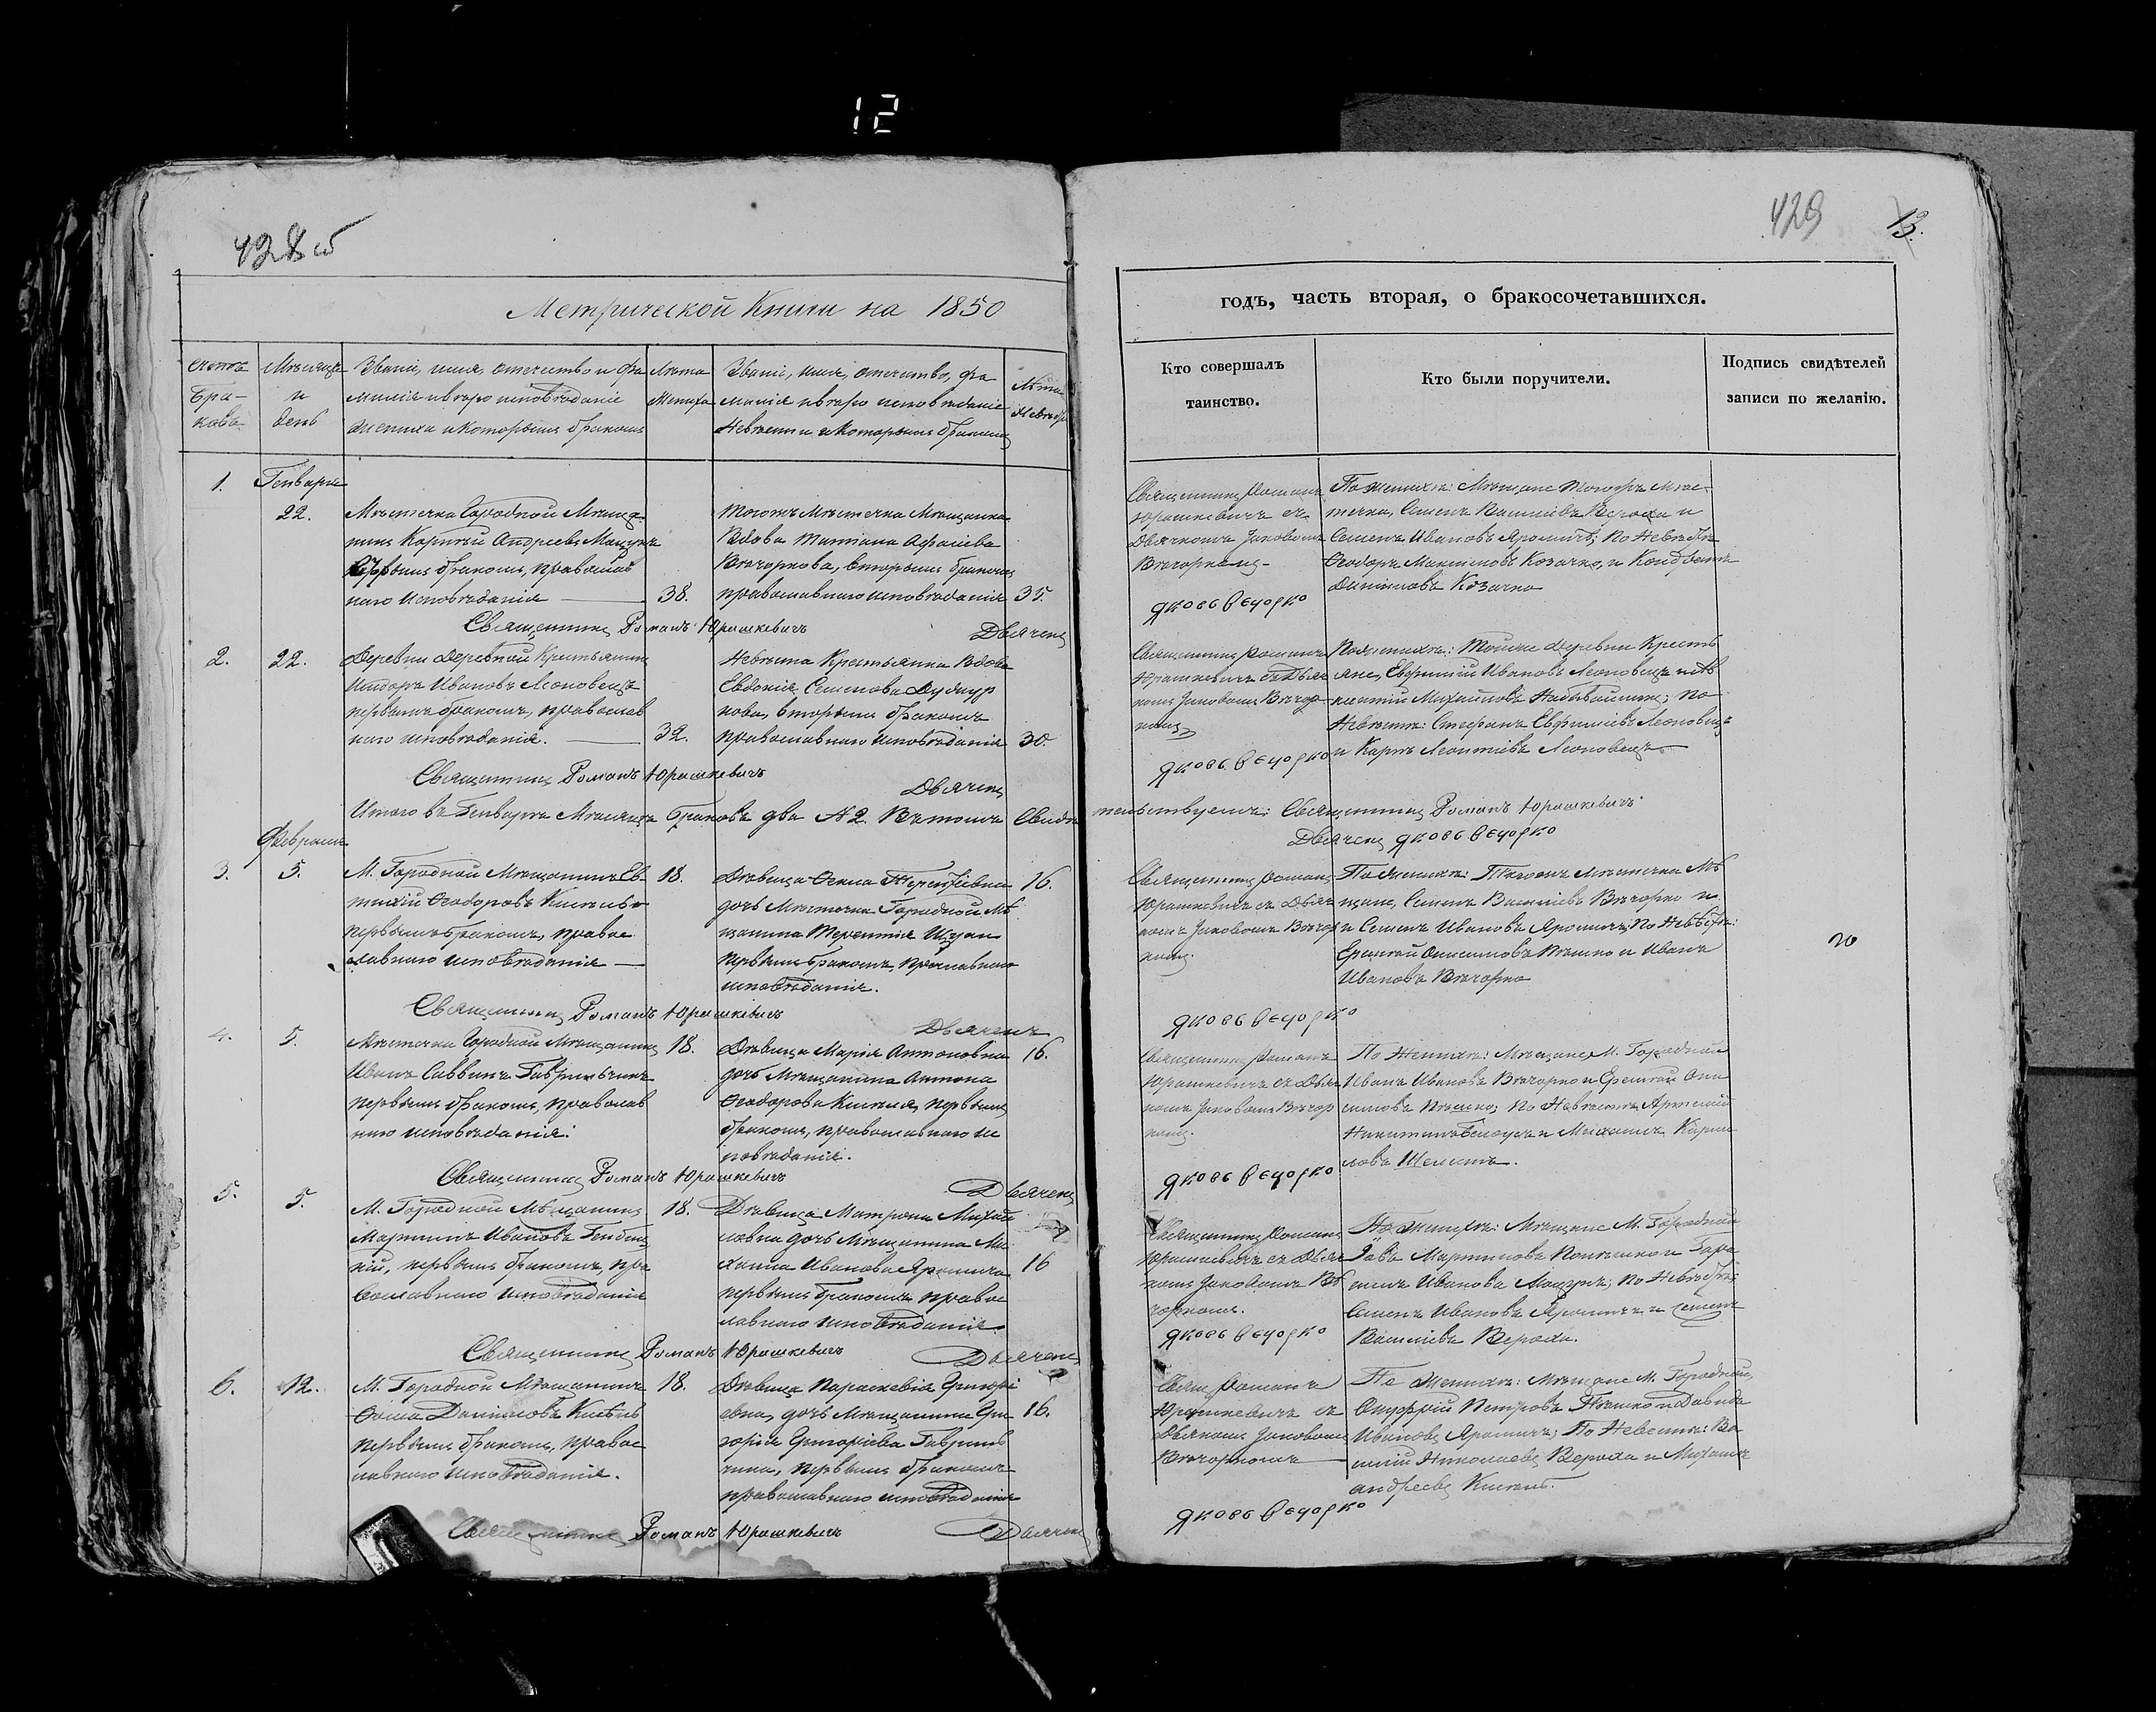 12
428 об
429
13.
Метрической Книги на 1850
годъ, часть вторая, о бракосочетавшихся.
Счетъ Бра-ковъ
Мѣсяцъ и день
Званіе, имя, отчество и фа
милія и вѣроисповѣданіе
жениха и которымъ бракомъ
Лѣта Жениха
Званіе, имя, отчество, фа
милія и вѣроисповѣданіе
Невѣсты и которымъ бракомъ
Лѣта Невѣсты
Кто совершалъ
таинство.
Кто были поручители.
Подпись свидѣтелей
записи по желанію.
1.
Генваря
22.
Мѣстечка Городной Мѣща
нинъ Корнѣй Андреевъ
бракомъ, православ
наго исповѣданія
38.
тогожъ Мѣстечка Мѣщанка
Вдова Татіана
Вечоркова, вторымъ бракомъ
православнаго исповѣданія
35.
Священникъ Романъ
Юрашкевичъ съ
Дьячкомъ Яковомъ
Вечоркомъ
По женихѣ: Мѣщане тогожъ Мѣс-
течка, Семенъ Васильевъ Вероха и
Семенъ Ивановъ Яромичъ; по Невѣстѣ
Ѳеодоръ Максимовъ Козачко, и Кондратъ
Даниловъ Козачко
Священникъ Романъ Юрашкевичъ
Дьячекъ
Яковъ Вечорко
2.
22.
Деревни Деревной Крестьянинъ
Исидоръ Ивановъ Леоновецъ
первымъ бракомъ, православ
наго исповѣданія.
32.
Невѣста Крестьянка Вдова
Евдокія Семенова
кова, вторымъ бракомъ
православнаго исповѣданія
30.
Священникъ Романъ
Юрашкевичъ съ Дьяч
комъ Яковомъ Вечор
комъ
По женихѣ: Тойже деревни Кресть
яне, Евфимій Ивановъ Леоновецъ и
Михайловъ по
Невѣстѣ: Стефанъ Евфиміевъ Леоновецъ
и Карпъ Леонтіевъ Леоновецъ
Священникъ Романъ Юрашкевичъ
Дьячекъ
Яковъ Вечорко
Итого въ Генварѣ Мѣсяцѣ браковъ два № 2. Въ томъ Свидѣ
тельствуемъ: Священникъ Романъ Юрашкевичъ
Дьячекъ Яковъ Вечорко
Февраля
3.
5.
М. Городной Мѣщанинъ Ев
тихій Ѳеодоровъ
первымъ бракомъ, правос
лавнаго исповѣданія
18.
Дѣвица Ѳекла Терентіевна
дочь Мѣстечка Городной Мѣ
щанина Терентія
первымъ бракомъ, православнаго
исповѣданія.
16.
Священникъ Романъ
Юрашкевичъ съ Дьяч
комъ Яковомъ Вечор
комъ.
По женихѣ: Тогожъ мѣстечка Мѣ
щане, Семенъ Васильевъ Вечорко
и Семенъ Ивановъ Яромичъ; По Невѣстѣ:
Еремѣй Онисимовъ Пѣшко и Иванъ
Ивановъ Вечорко
Священникъ Романъ Юрашкевичъ
Дьячекъ
Яковъ Вечорко
4.
5.
Мѣстечка Городной Мѣщанинъ
Иванъ Саввинъ Гаврильчикъ
первымъ бракомъ, православ
наго исповѣданія.
18.
Дѣвица Марія Антоновна
дочь Мѣщанина Антона
Ѳеодорова первымъ
бракомъ, православнаго ис
повѣданія.
16.
Священникъ Романъ
Юрашкевичъ съ Дьяч
комъ Яковомъ Вечор
комъ.
По Женихѣ: Мѣщане М. Городной
Иванъ Ивановъ Вечорко и Еремѣй Они
симовъ Пѣшко; По Невѣстѣ
Никитинъ и Михаилъ Кирил
ловъ
Священникъ Романъ Юрашкевичъ
Дьячекъ
Яковъ Вечорко
5.
5.
М. Городной Мѣщанинъ
Мартинъ Ивановъ
первымъ бракомъ, пра
вославнаго исповѣданія
18.
Дѣвица Матрона Михай
ловна дочь Мѣщанина Ми
хаила Иванова Яромича
первымъ бракомъ правос
лавнаго исповѣданія.
16
Священникъ Романъ
Юрашкевичъ съ Дьяч
комъ Яковомъ Ве
чоркомъ.
По женихѣ: Мѣщане М. Городной
Мартиновъ и Гера
симъ Ивановъ по Невѣстѣ:
Семенъ Ивановъ Яромичъ и Семенъ
Васильевъ Вероха.
Священникъ Романъ Юрашкевичъ
Дьячекъ
Яковъ Вечорко
6.
12.
М. Городной Мѣщанинъ
Ѳома Даниловъ
первымъ бракомъ, правос
лавнаго исповѣданія.
18.
Дѣвица Параскевія Григорі
евна, дочь Мѣщанина Гри
горія Григоріева Гавриль
чика, первымъ бракомъ
православнаго исповѣданія
16.
Свящ. Романъ
Юрашкевичъ съ
Дьячкомъ Яковомъ
Вечоркомъ
По женихѣ: Мѣщане М. Городной,
Онуфрій Петровъ Пѣшко и Давидъ
Ивановъ Яромичъ; По Невѣстѣ: Ва
силій Николаевъ Вероха и Михаилъ
Андреевъ
Священникъ Романъ Юрашкевичъ
Дьячекъ
Яковъ Вечорко